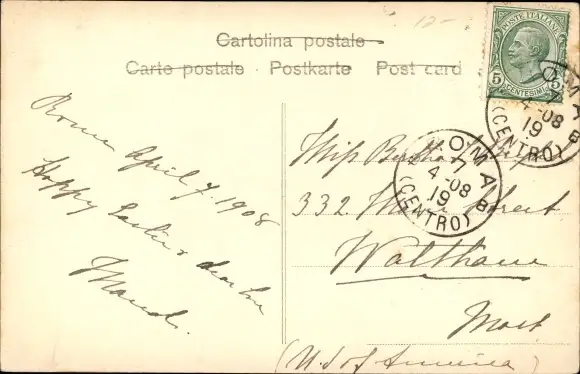 Cartolina postale
Carte postale · Postkarte Post card
12-
POSTE ITALIANE
5 5
CENTESIMI
ROMA
7
4-08
19
(CENTRO)
8
ROMA
7
4-08
19
(CENTRO)
8
Rome April 7. 1908
Happy Easter dear
Maud.
Miss Bertha
332 Street
Waltham
Mass
(U.S. of America)